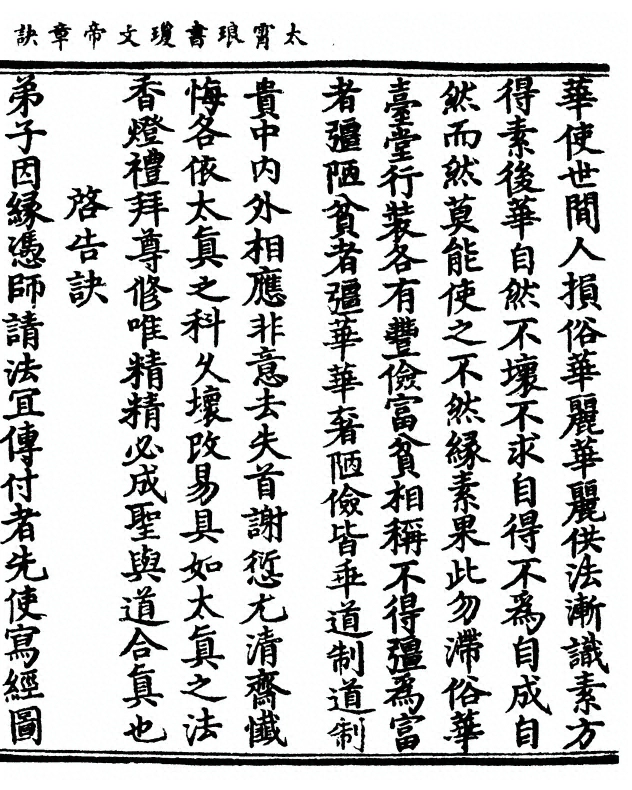 太霄琅書瓊文帝章訣
華使世間人損俗華麗華麗供法漸識素方
得素後華自然不壞不求自得不為自成自
然而然莫能使之不然緣素果此勿滯俗華
臺堂行裝各有豐儉富貧相稱不得彊為富
者彊陋貧者彊華華奢陋儉皆乖道制道制
貴中內外相應非意去失首謝愆尤清齋懴
悔各依太真之科久壞改易具如太真之法
香燈禮拜尊修唯精精必成聖與道合真也
啓告訣
弟子因緣憑師請法冝傳付者先使寫經圖